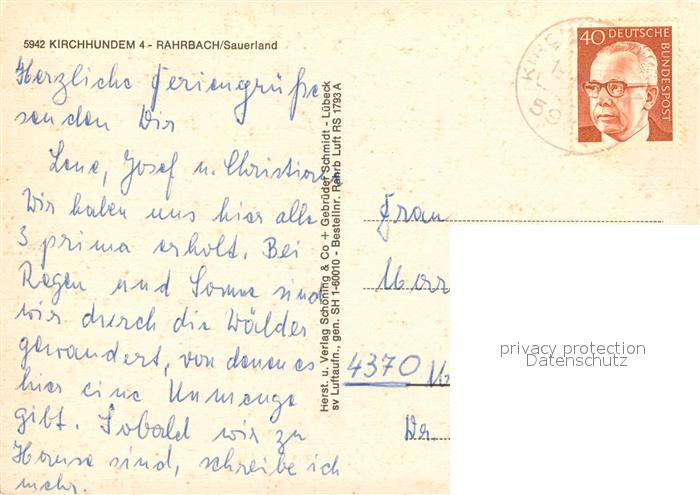 5942 KIRCHHUNDEM 4 - RAHRBACH/Sauerland
Herzliche Feriengrüße
senden Dir
Lene, Josef u. Christiane
Wir haben uns hier alle
3 prima erholt. Bei
Regen und Sonne sind
wir durch die Wälder
gewandert, von denen es
hier eine Unmenge
gibt. Sobald wir zu
Hause sind, schreibe ich
mehr.
Herst. u. Verlag Schöning & Co + Gebrüder Schmidt - Lübeck
sv Luftaufn., gen. SH 1-60010 - Bestellnr. Rahrb Luft RS 1793 A
KIRC
59
40 DEUTSCHE
BUNDESPOST
Frau
4370
privacy protection
Datenschutz